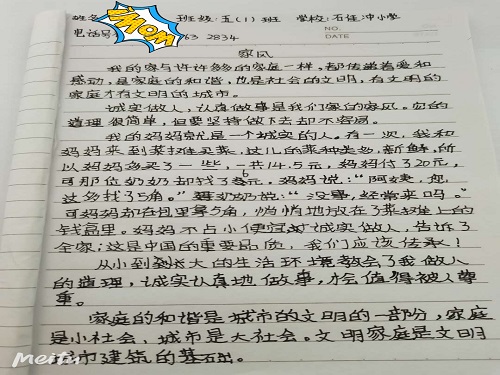 姓名 班级:五(1)班 学校:石佳冲小学
电话号 763 2834
NO.
DATE
WOMOM
家风
我的家与许许多多的家庭一样,都传递着爱和
感动,是家庭的和谐,也是社会的文明,有文明的
家庭才有文明的城市。
诚实做人,认真做事是我们家的家风。它的
道理很简单,但要坚持做下去却不容易。
我的妈妈就是一个诚实的人。有一次,我和
妈妈来到菜摊买菜,这儿的菜种类多,新鲜,所
以妈妈多买了一些,一共14.5元,妈妈付了20元,
可那位奶奶却找了6元,妈妈说:“阿姨,您
这多找了5角。”奶奶说:“没事,经常来吗。”
可妈妈却在包里拿5角,悄悄地放在了菜摊上的
钱篮里。妈妈不占小便宜对诚实做人,告诉了
全家:这是中国的重要品质,我们应该传承!
从小到长大的生活环境教会了我做人
的道理,诚实认真地做事,才会值得被人尊
重。
家庭的和谐是城市的文明的一部分,家庭
是小社会,城市是大社会。文明家庭是文明
城市建筑的基石。
Meitu